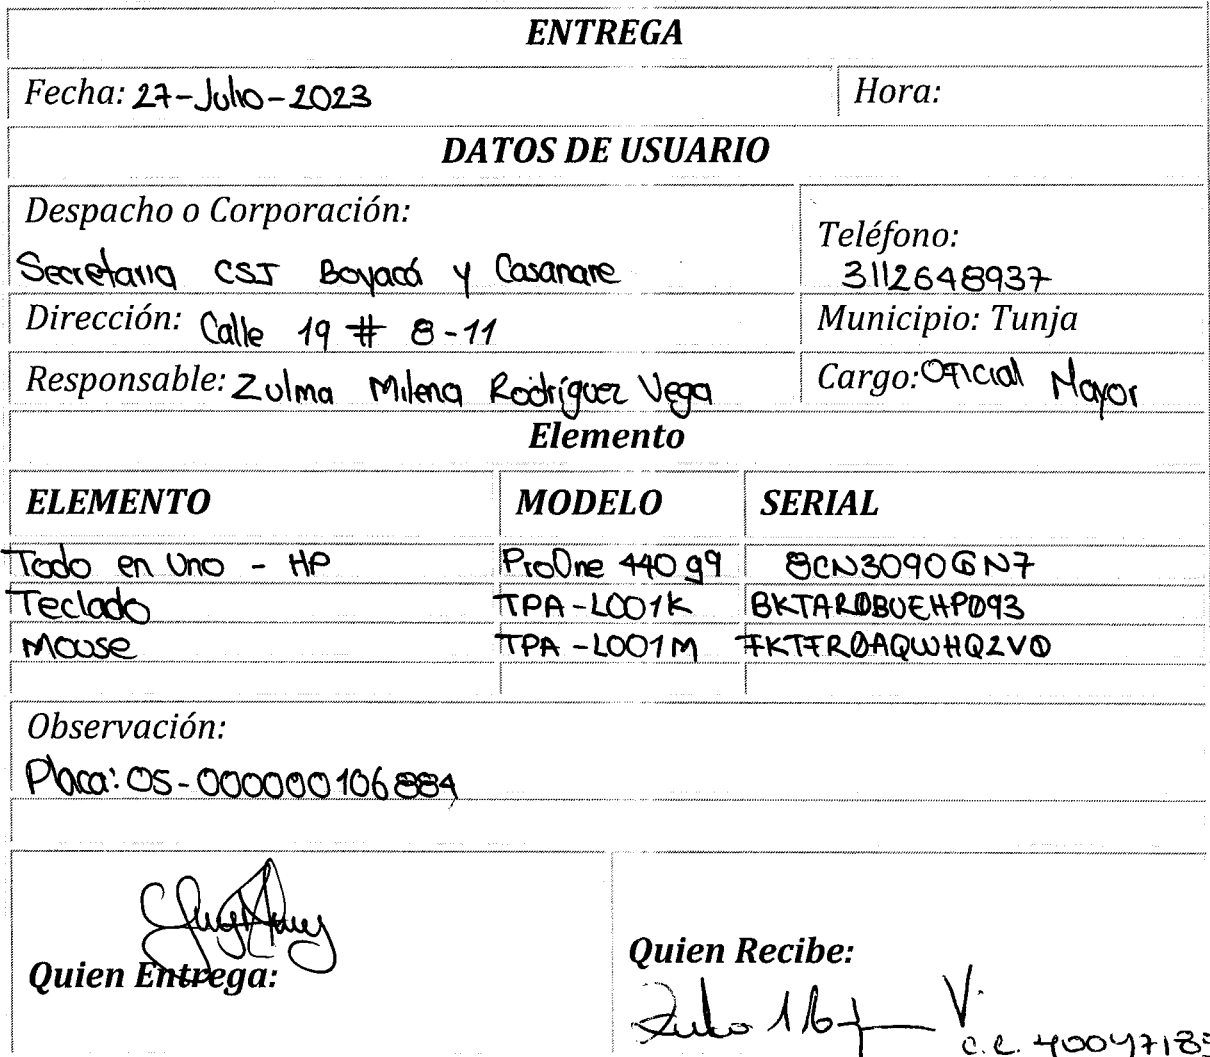 ENTREGA
Fecha: 27-Julio-2023 Hora:
DATOS DE USUARIO
Despacho o Corporación:
Secretaria CSJ Boyacá y Casanare
Teléfono:
3112648937
Dirección: Calle 19 # 8-11 Municipio: Tunja
Responsable: Zulma Milena Rodríguez Vega Cargo: Oficial Mayor
Elemento
ELEMENTO MODELO SERIAL
Todo en Uno - HP ProOne 440 g9 8CN3090GN7
Teclado TPA-L001K BKTAR0BUEHP093
Mouse TPA-L001M FKTFR0AQWHQ2V0
Observación:
Placa: OS-000000106884
Quien Entrega:
Quien Recibe:
C.C. 4004718